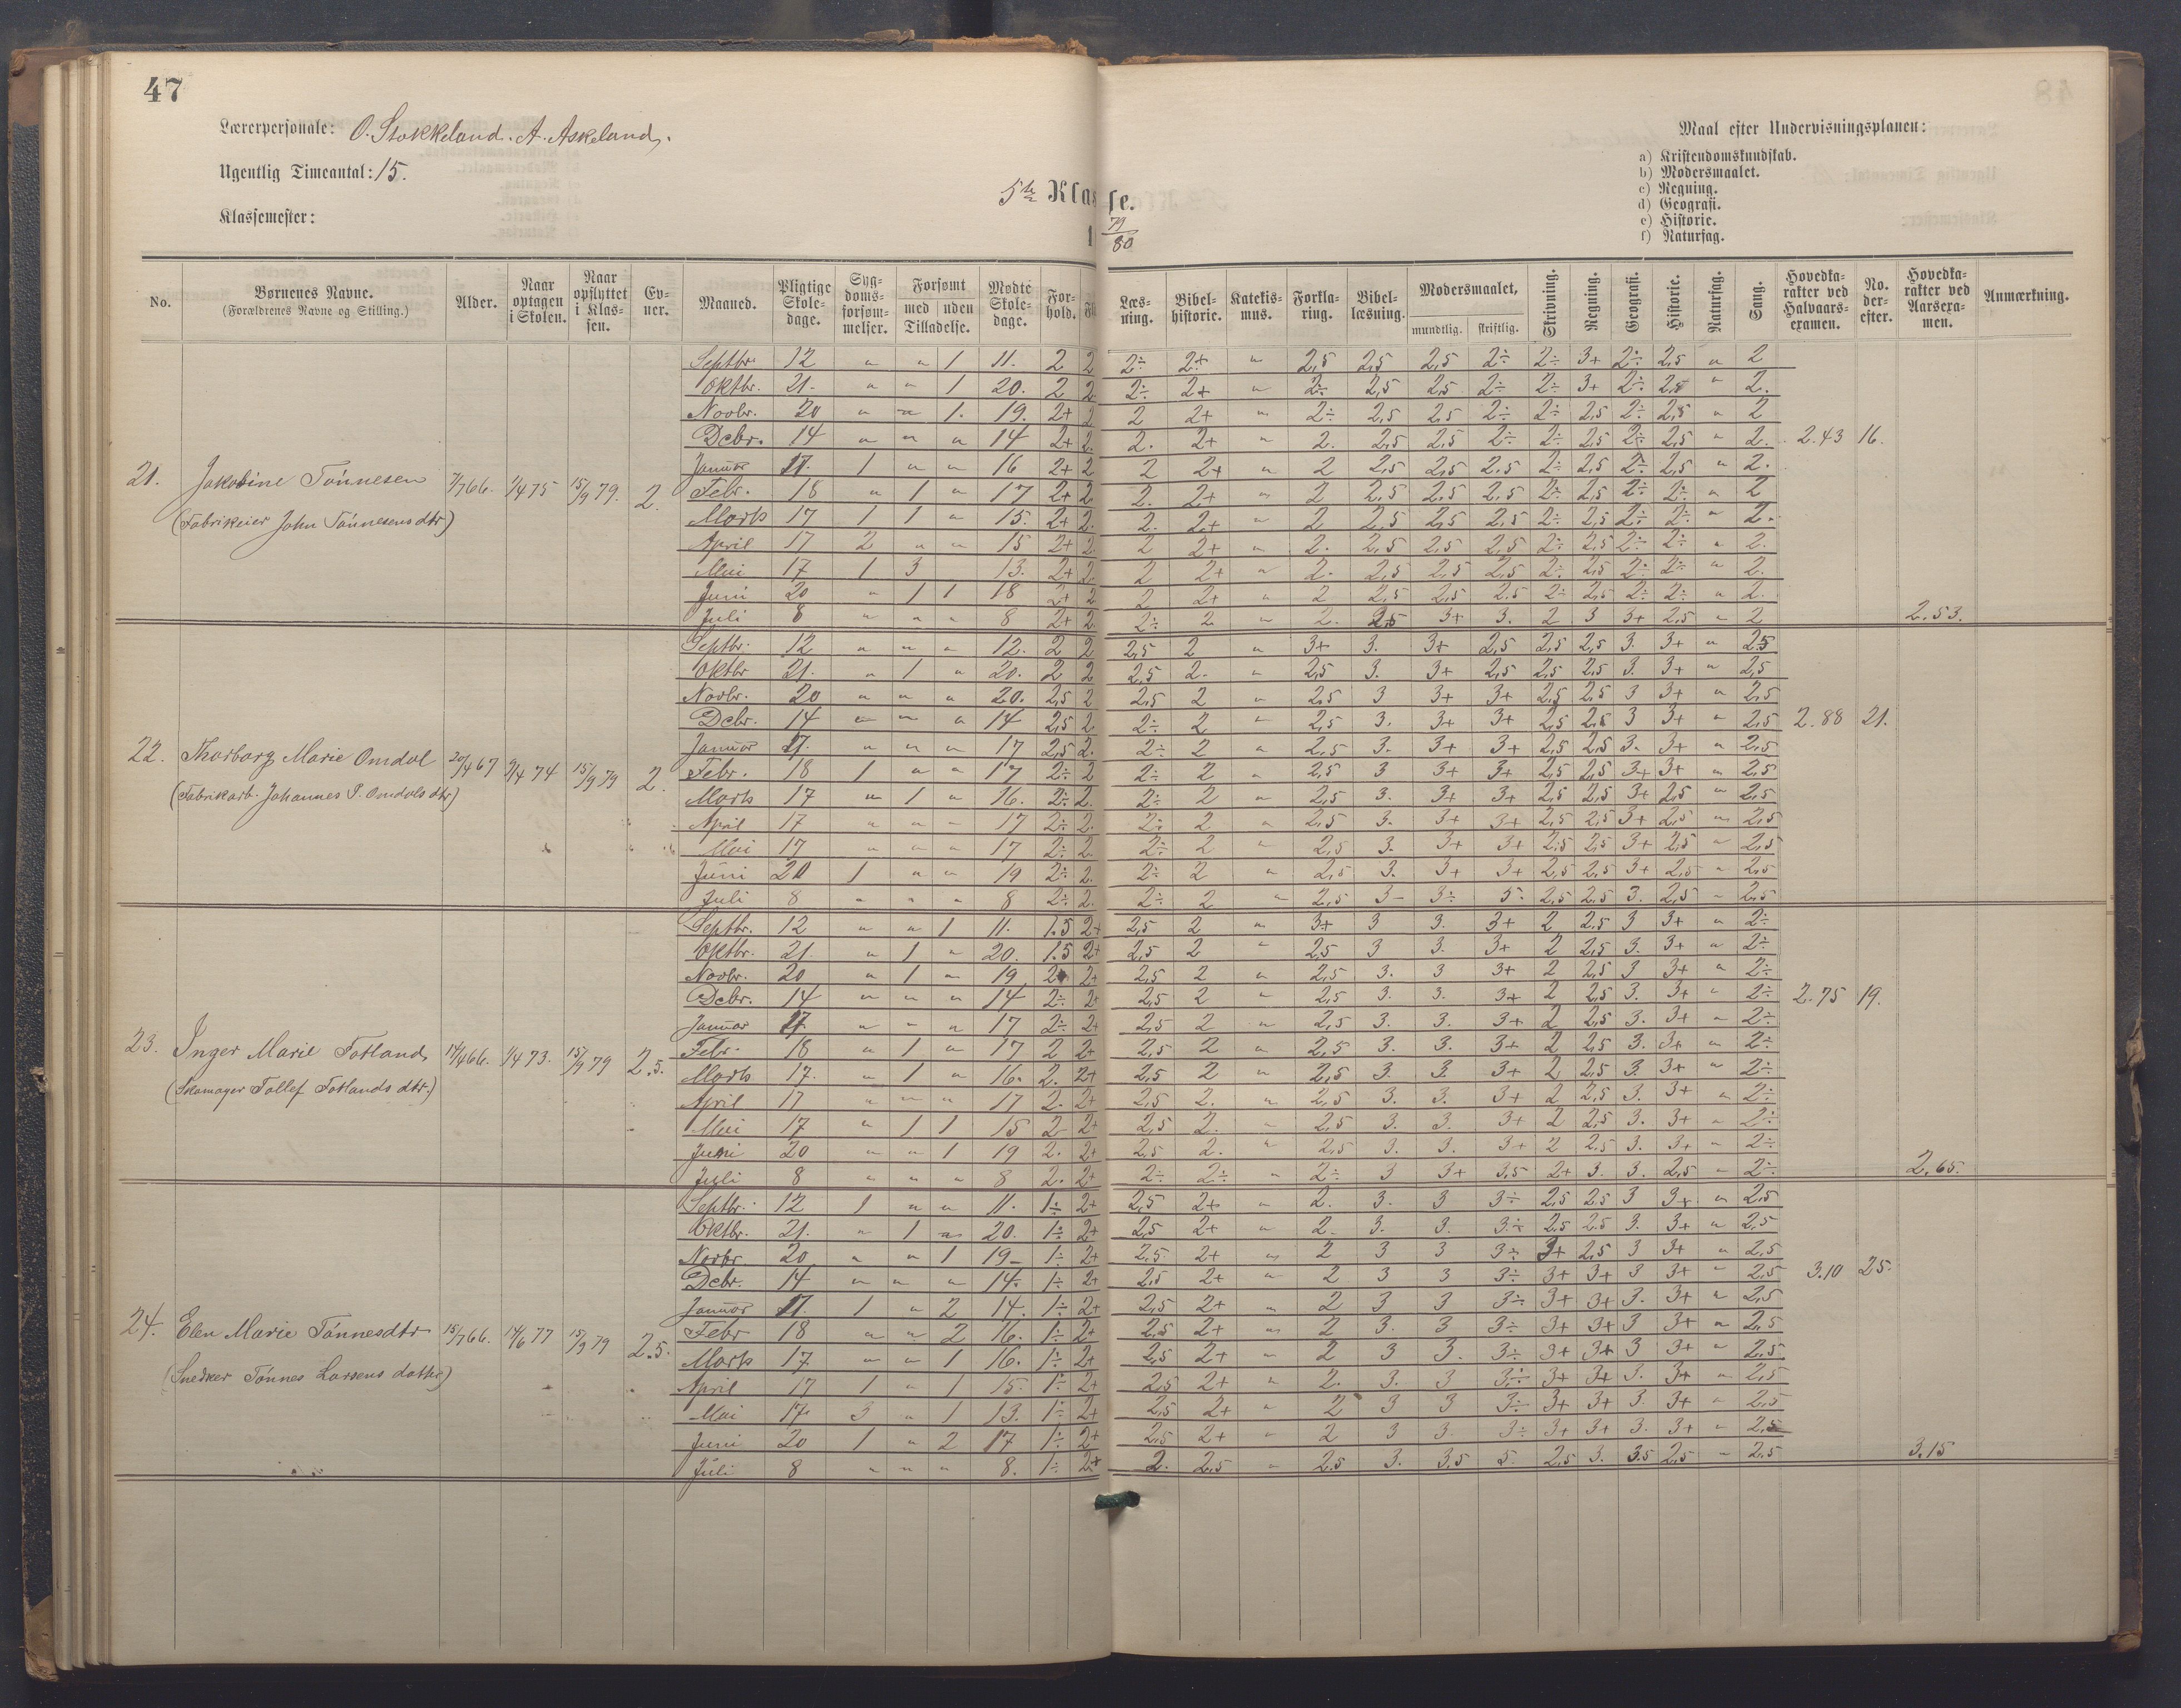 47
Lærerpersonale: O. Stokkeland. A. Askeland.
Ugentlig Timeantal: 15.
Klassemester:
5te Klasse.
79/80
Maal efter Undervisningsplanen:
a) Kristendomskundskab.
b) Modersmaalet.
c) Regning.
d) Geografi.
e) Historie.
f) Naturfag.
No. Børnenes Navne. (Forældrenes Navne og Stilling.) Alder. Naar optagen i Skolen. Naar opflyttet i Klassen. Evner. Maaned. Pligtige Skoledage. Sygdomsforsømmelser. Forsømt med uden Tilladelse. Mødte Skoledage. Forhold. Læsning. Bibelhistorie. Katekismus. Forklaring. Bibellæsning. Modersmaalet, mundtlig. skriftlig. Skrivning. Regning. Geografi. Historie. Naturfag. Sang. Hovedkarakter ved Halvaarsexamen. No. derefter. Hovedkarakter ved Aarsexamen. Anmærkning.
Septbr. 12 " " 1 11. 2 2 2÷ 2+ " 2,5 2,5 2,5 2÷ 2÷ 3+ 2÷ 2,5 " 2
Oktbr. 21. " " 1 20. 2 2 2÷ 2+ " 2÷ 2,5 2,5 2÷ 2÷ 3+ 2÷ 2,5 " 2.
Novbr. 20 " " 1. 19. 2+ 2 2 2+ " 2÷ 2,5 2,5 2÷ 2÷ 2,5 2÷ 2,5 " 2
Debr. 14 " " " 14 2+ 2. 2. 2+ " 2. 2,5 2,5 2÷ 2÷ 2,5 2÷ 2,5 " 2. 2.43 16.
Januar 17. 1 " " 16 2+ 2 2 2+ " 2 2,5 2,5 2.5 2÷ 2,5 2÷ 2,5 " 2.
21. Jakobine Tönnesen 7/7 66. 1/4 75 15/9 79. 2. Febr. 18 " 1 " 17 2+ 2 2. 2+ " 2 2,5 2,5 2,5 2÷ 2,5 2÷ 2÷ " 2
(Fabrikeier John Tönnesens dtr) Marts 17 1 1 " 15. 2+ 2. 2. 2+ " 2 2,5 2,5 2,5 2÷ 2,5 2÷ 2÷ " 2.
April 17 2 " " 15 2+ 2. 2 2+ " 2. 2,5 2,5 2,5 2÷ 2,5 2÷ 2÷ " 2.
Mai 17 1 3 13. 2+ 2. 2 2+ " 2. 2,5 2,5 2,5 2÷ 2,5 2÷ 2÷ " 2.
Juni 20 " 1 1 18 2+ 2 2 2+ " 2 2,5 2,5 2,5 2÷ 2,5 2÷ 2÷ " 2.
Juli 8 " " " 8 2+ 2. 2÷ 2 " 2. 2,5 3+ 3. 2 3 3+ 2,5 " 2 2.53.
Septbr. 12 " " " 12. 2 2 2,5 2 " 3+ 3. 3+ 2,5 2,5 2,5 3. 3+ " 2.5
Oktbr 21. " 1 " 20. 2 2 2,5 2. " 2,5 3. 3+ 2,5 2,5 2,5 3. 3+ " 2,5
Novbr. 20 " " " 20. 2,5 2 2,5 2 " 2,5 3 3+ 3+ 2,5 2,5 3 3+ " 2,5
Debr. 14 " " " 14 2,5 2. 2÷ 2 " 2,5 3. 3+ 3+ 2,5 2,5 3 3+ " 2,5 2.88 21.
Januar 17. " " " 17 2,5 2. 2÷ 2 " 2,5 3. 3+ 3+ 2,5 2,5 3. 3+ " 2,5
22. Thorborg Marie Omdal 20/4 67 9/4 74 15/9 79 2. Febr. 18 1 " " 17 2÷ 2 2÷ 2 " 2,5 3 3+ 3+ 2,5 2,5 3+ 3+ " 2,5
(Fabrikarb. Johannes P. Omdals dtr) Marts 17 " 1 " 16. 2÷ 2. 2÷ 2 " 2,5 3. 3+ 3+ 2,5 2,5 3+ 2,5 " 2,5
April 17 " " " 17 2÷ 2. 2÷ 2 " 2,5 3. 3+ 3+ 2,5 2,5 3+ 2,5 " 2,5
Mai 17 " " " 17 2÷ 2. 2÷ 2 " 2,5 3. 3+ 3+ 2,5 2,5 3+ 2,5 " 2,5
Juni 20 1 " " 19 2÷ 2. 2÷ 2 " 2,5 3. 3+ 3+ 2,5 2,5 3+ 2,5 " 2,5
Juli 8 " " " 8 2÷ 2. 2÷ 2 " 2,5 3- 3÷ 5- 2,5 2,5 3. 2,5 " 2,5
Septbr. 12 " " 1 11. 1.5 2+ 2,5 2 " 3+ 3 3. 3+ 2 2,5 3 3+ " 2÷
Oktbr. 21. " 1 " 20. 1.5 2+ 2,5 2 " 2,5 3 3. 3+ 2 2,5 3. 3+ " 2÷
Novbr. 20 " 1 " 19 2+ 2,5 2 " 2,5 3. 3 3+ 2 2,5 3 3+ " 2÷
Debr. 14 " " " 14 2÷ 2+ 2,5 2 " 2,5 3. 3. 3+ 2 2,5 3. 3+ " 2÷ 2.75 19.
Januar 17. " " " 17 2÷ 2+ 2,5 2 " 2,5 3. 3. 3+ 2 2,5 3. 3+ " 2÷
23. Inger Marie Fotland 17/4 66. 1/4 73. 15/9 79 2.5. Febr. 18 " 1 " 17 2 2+ 2,5 2 " 2,5 3. 3. 3+ 2 2,5 3. 3+ " 2÷
(Skomager Tollef Fotlands dtr.) Marts 17. " 1 " 16. 2. 2+ 2,5 2 " 2,5 3. 3. 3+ 2 2,5 3. 3+ " 2÷
April 17 " " " 17 2. 2+ 2,5 2. " 2,5 3. 3. 3+ 2 2,5 3. 3+ " 2÷
Mai 17 " 1 1 15 2 2+ 2,5 2. " 2,5 3. 3. 3+ 2 2,5 3. 3+ " 2÷
Juni 20 " " 1 19 2. 2+ 2,5 2. " 2,5 3. 3. 3+ 2 2,5 3. 3+ " 2÷
Juli 8 " " " 8 2. 2+ 2÷ 2÷ " 2÷ 3 3+ 3,5 2+ 3. 3. 2,5 " 2÷ 2.65.
Septbr. 12 1 " " 11. 1÷ 2+ 2,5 2+ " 2. 3. 3 3÷ 2,5 2,5 3 3+ " 2,5
Oktbr. 21. " 1 " 20. 1÷ 2+ 2,5 2+ " 2. 3. 3. 3÷ 2,5 2,5 3. 3+ " 2,5
Novbr. 20 " " 1 19- 1÷ 2+ 2,5 2+ " 2 3 3 3÷ 3+ 2,5 3 3+ " 2,5
Debr. 14 " " " 14. 1÷ 2+ 2,5 2+ " 2 3 3 3÷ 3+ 3+ 3 3+ " 2,5 3.10 25.
Januar 17. 1 " 2 14. 1÷ 2+ 2,5 2+ " 2 3 3 3÷ 3+ 3+ 3. 3+ " 2,5
24. Elen Marie Tönnesdtr 15/7 66. 14/6 77 15/9 79 2.5. Febr 18 " " 2 16. 1÷ 2+ 2,5 2+ " 2 3. 3 3÷ 3+ 3+ 3 3+ " 2,5
(Snedker Tönnes Larsens datter) Marts 17. " " 1 16. 1÷ 2+ 2,5 2+ " 2 3 3. 3÷ 3+ 3+ 3 3+ " 2,5
April 17 1 " 1 15. 1÷ 2+ 2,5 2+ " 2. 3. 3 3÷ 3+ 3+ 3. 3+ " 2,5
Mai 17. 3 " 1 13. 1÷ 2+ 2,5 2+ " 2 3 3 3÷ 3+ 3+ 3. 3+ " 2,5
Juni 20 1 " 2 17 1÷ 2+ 2,5 2+ " 2 3 3. 3÷ 3+ 3+ 3. 3+ " 2,5
Juli 8 " " " 8. 1÷ 2+ 2. 2.5 " 2.5 3. 3,5 5. 2,5 3. 3.5 2,5 " 2.5 3.15